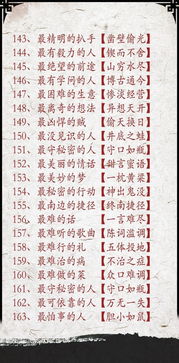 143、最精明的扒手【凿壁偷光】
144、最有毅力的人【锲而不舍】
145、最绝望的前途【山穷水尽】
146、最有学问的人【博古通今】
147、最困难的生意【惨淡经营】
148、最离奇的想法【异想天开】
149、最凶悍的贼【偷天换日】
150、最没见识的人【井底之蛙】
151、最守秘密的人【守口如瓶】
152、最美丽的情话【甜言蜜语】
153、最美妙的梦【一枕黄粱】
154、最秘密的行动【神出鬼没】
155、最南边的捷径【终南捷径】
156、最难的话【一言难尽】
157、最难听的歌曲【陈词滥调】
158、最难行的礼【五体投地】
159、最难治的病【不治之症】
160、最难做的菜【众口难调】
161、最守秘密的人【守口如瓶】
162、最可依靠的人【万无一失】
163、最怕事的人【胆小如鼠】